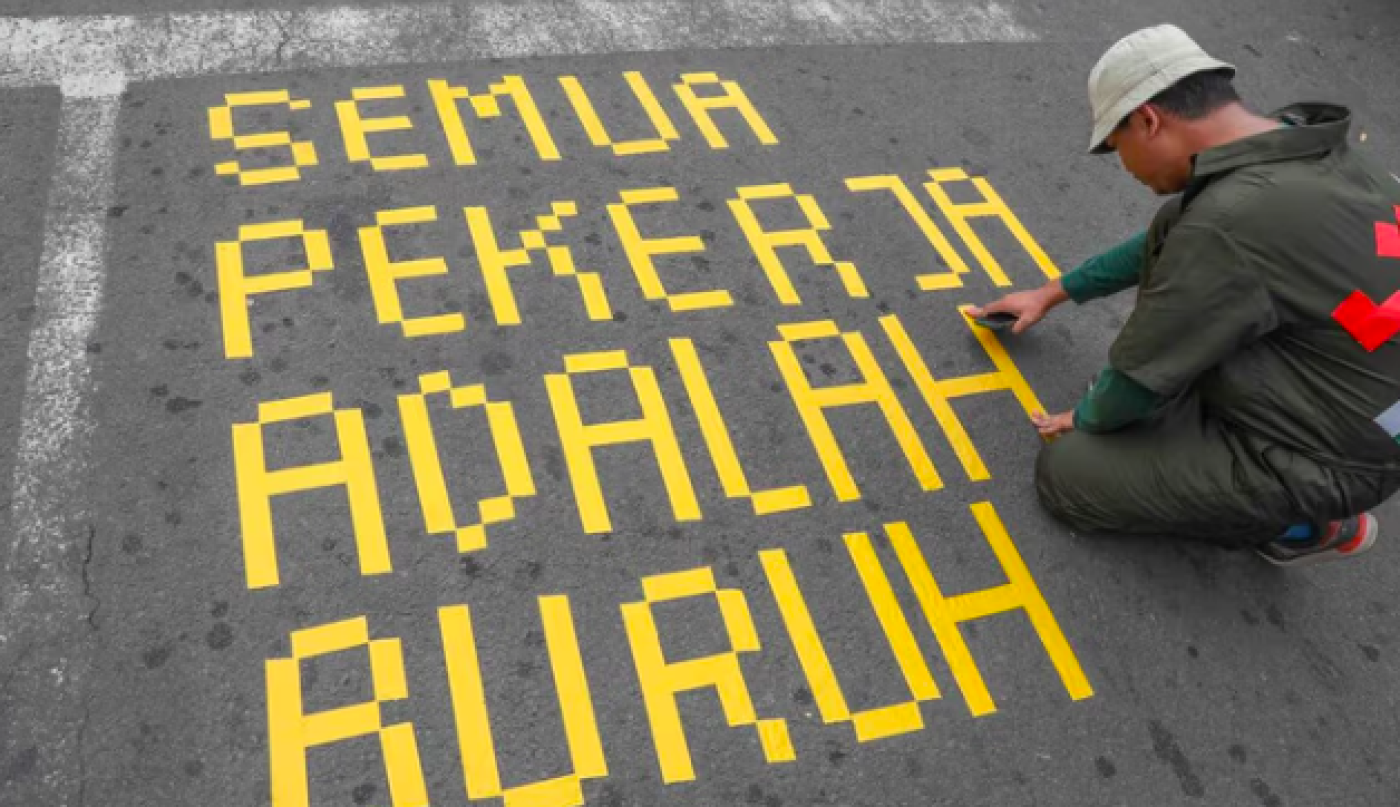 SEMUA
PEKERJA
ADALAH
BURUH